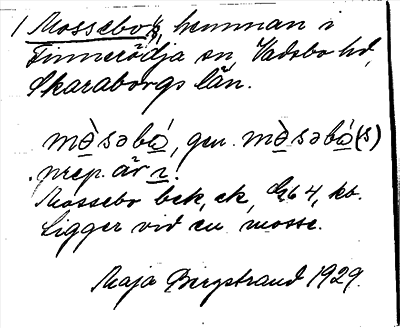 1 Mossebo, hemman i
Finnerödja sn, Vadsbo hd,
Skaraborgs län.
mòsəbó, gen. mòsəbó(s)
prep. är ı.
Mossebo bek, ek, G64, kb.
Ligger vid en mosse.
Maja Bergstrand 1929.